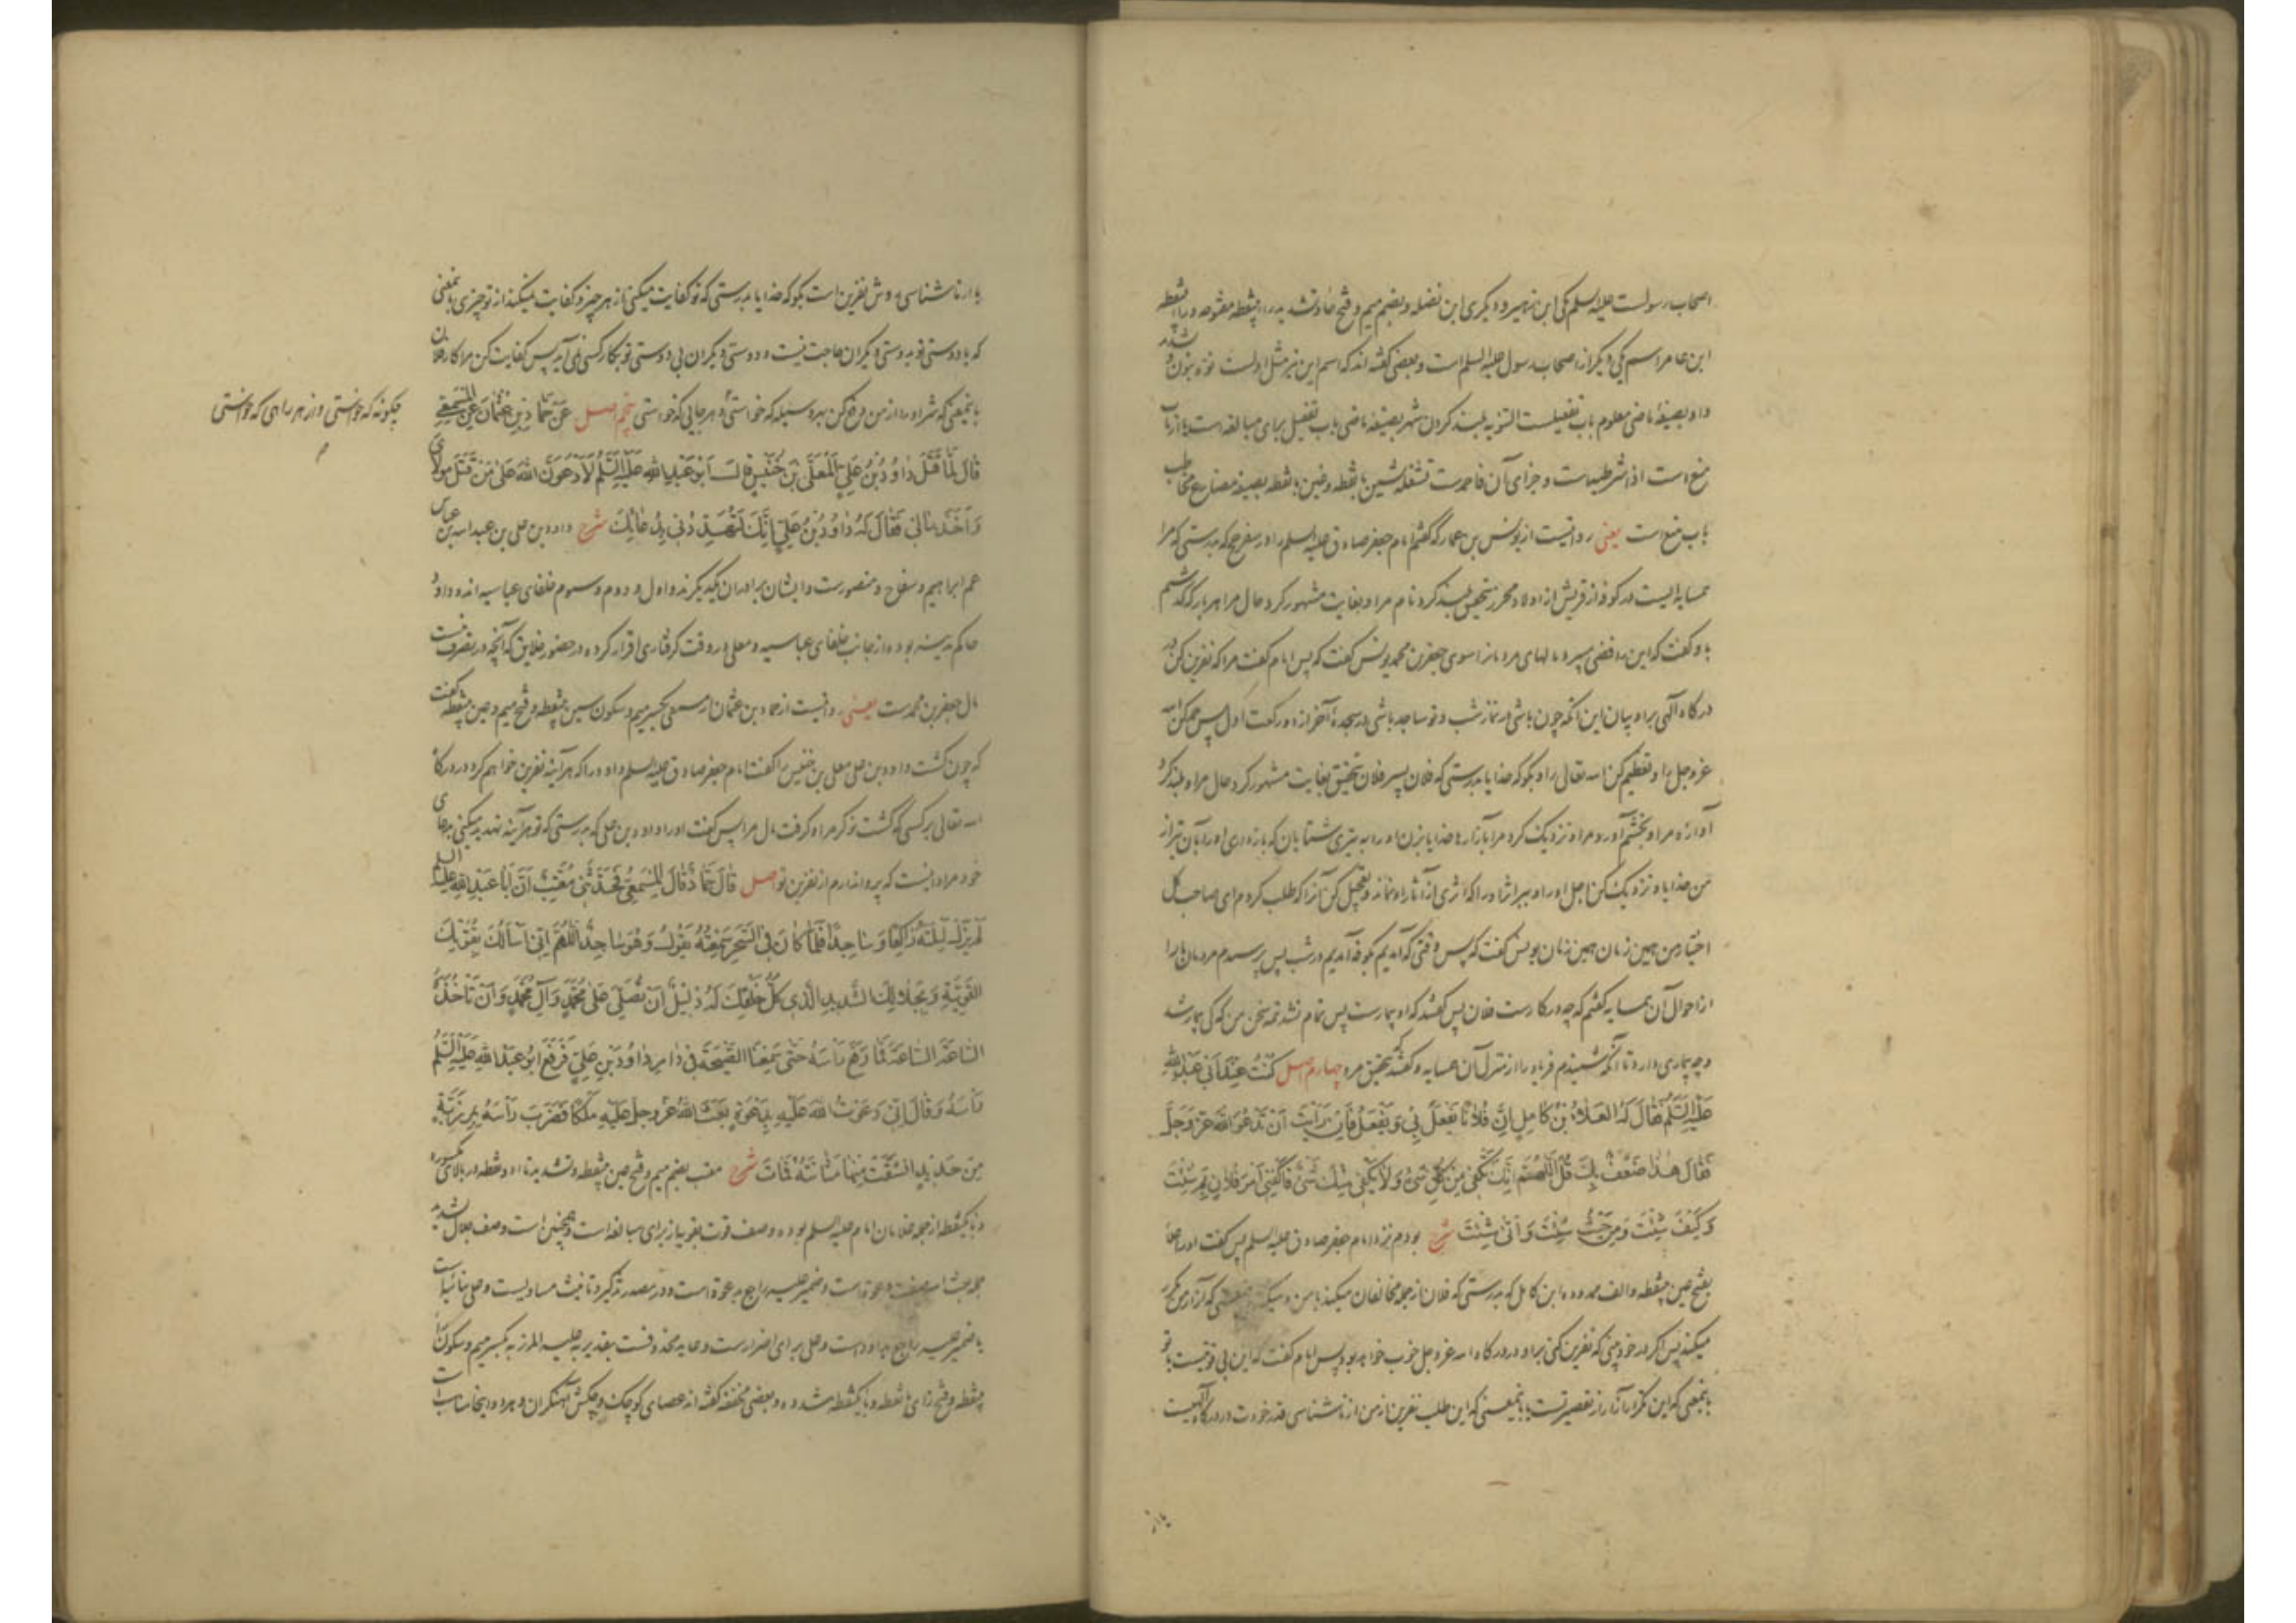 اصحاب رسولست علیه السلم یکی ابن زهیر و دیگری ابن نضله و بضم میم و فتح حاء و تشدید راء بینقطه مفتوحه و راء بینقطه
ابن عامر اسم یکی دیگر از اصحاب رسول علیه السلم است و بعضی گفته اند که اسم این نیز مثل اولست نوّه بنون و شدّ
واو بصیغهٔ ماضی معلوم باب تفعیلست التنویه بلند کردن شهر بصیغهٔ ماضی باب تفعیل برای مبالغه است یا از باب
منع است اذا شرطیه است و جزای آن فاحمدست تشغله بشین بانقطه و غین بانقطه بصیغهٔ مضارع مخاطب
باب منع است یعنی روایتست از یونس بن عمار که گفتم امام جعفر صادق علیه السلم را در سفر حج که بدرستی که مرا
همسایه ایست در کوفه از قریش از اولاد محرز بتحقیق بلند کرد نام مرا و بغایت مشهور کرد حال مرا هر بار که گذشتم
باو گفت که این رافضی میبرد مالهای مردمان را سوی جعفر بن محمد یونس گفت که پس امام گفت مرا که نفرین کن در
درگاه الهی براو بیان این آنکه چون باشی در نماز شب و تو ساجد باشی در سجدهٔ آخر از دو رکعت اول پس حمد کن الله
عز و جل را و تعظیم کن الله تعالی را و بگو که خدایا بدرستی که فلان پسر فلان بتحقیق بغایت مشهور کرد حال مرا و بلند کرد
آوازه مرا و بخشم آورد مرا و نزدیک کرد مرا بآزارها خدایا بزن او را به تیری شتابان که بازداری او را بآن تیر از
من خدایا و نزدیک کن اجل او را و ببر اثار او را که اثری از آثار او نماند و تعجیل کن آنرا که طلب کردم ای صاحب کل
اختیار من همین زمان همین زمان یونس گفت که پس وقتی که آمدیم بکوفه آمدیم در شب پس پرسیدم مردمان ما را
از احوال آن همسایه گفتم که چه در کارست فلان پس گفتند که او بیمارست پس تمام نشد تتمه سخن من که کی بیمار شد
و چه بیماری دارد تا آنکه شنیدم فریاد را از منزل آن همسایه و گفتند که بتحقیق مرد چهارم اصل كُنْتُ عِنْدَ اَبِي عَبْدِ اللهِ
عَلَيْهِ السَّلَمُ فَقَالَ لَهُ العَلَاءُ بْنُ كَامِلٍ اِنَّ فُلَانًا يَفْعَلُ بِي وَ يَفْعَلُ فَاِنْ رَاَيْتَ اَنْ تَدْعُوَ اللهَ عَزَّ وَ جَلَّ
فَقَالَ هٰذَا ضَعْفٌ بِكَ قُلِ اللّٰهُمَّ اِنَّكَ تَكْفِي مِنْ كُلِّ شَيْءٍ وَ لَا يَكْفِي مِنْكَ شَيْءٌ فَاكْفِنِي اَمْرَ فُلَانٍ بِمَ شِئْتَ
وَ كَيْفَ شِئْتَ وَ مِنْ حَيْثُ شِئْتَ وَ اَنّٰى شِئْتَ شرح بودم نزد امام جعفر صادق علیه السلم پس گفت او را علاء
بفتح عین بینقطه و الف ممدوده ابن کامل که بدرستی که فلان از جمله مخالفان میکند با من و میکند یعنی که آزار من مکرر
میکند پس اگر در خود بینی که نفرین کنی براو در درگاه الله عز و جل خوب خواهد بود پس امام گفت که این بی قوتیست با تو
بابمعنی که این تکرار آزار از تقصیر تست یا باینمعنی که این طلب نفرین از من از ناشناسی قدر خودت در درگاه الهیست
یا از
یا از ناشناسی روش نفرین است بگو که خدایا بدرستی که تو کفایت میکنی از هر چیز و کفایت نمیکند از تو چیزی بمعنی
که با دوستی تو بدوستی دیگران حاجت نیست و دوستی دیگران بی دوستی تو بکار کسی نمی آید پس کفایت کن مرا کار فلان
باینمعنی که شر او را از من دفع کن بهر وسیله که خواستی و هر جایی که خواستی پنجم اصل عَنْ حَمَّادِ بْنِ عُثْمَانَ عَنِ المِسْمَعِيِّ
چگونه که خواستی و از هر راهی که خواستی
قَالَ لَمَّا قَتَلَ دَاوُدُ بْنُ عَلِيٍّ المُعَلَّى بْنَ خُنَيْسٍ قَالَ اَبُو عَبْدِ اللهِ عَلَيْهِ السَّلَمُ لَاَدْعُوَنَّ اللهَ عَلٰى مَنْ قَتَلَ مَوْلَايَ
وَ اَخَذَ مَالِي فَقَالَ لَهُ دَاوُدُ بْنُ عَلِيٍّ اِنَّكَ لَتُهَدِّدُنِي بِدُعَائِكَ شرح داود بن علی بن عبد الله بن عباس
عم ابراهیم و سفاح و منصورست و ایشان برادران یکدیگرند و اول و دوم و سیوم خلفای عباسیه اند و داود
حاکم مدینه بوده از جانب خلفای عباسیه و معلی در وقت گرفتاری اقرار کرده در حضور خلایق که آنچه در تصرف منست
مال جعفر بن محمدست یعنی روایتست از حماد بن عثمان از مسمعی بکسر میم و سکون سین بینقطه و فتح میم و عین بینقطه گفت
که چون کشت داود بن علی معلی بن خنیس را گفت امام جعفر صادق علیه السلم داود را که هر آینه نفرین خواهم کرد در درگاه
الله تعالی بر کسی که کشت نوکر مرا و گرفت مال مرا پس گفت او را داود بن علی که بدرستی که تو هر آینه تهدید میکنی بدعای
خود مرا مراد اینست که پروا ندارم از نفرین تو اصل قَالَ حَمَّادٌ قَالَ المِسْمَعِيُّ فَحَدَّثَنِي مُعَتِّبٌ اَنَّ اَبَا عَبْدِ اللهِ عَلَيْهِ السلم
لَمْ يَزَلْ لَيْلَتَهُ رَاكِعًا وَ سَاجِدًا فَلَمَّا كَانَ فِي السَّحَرِ سَمِعْتُهُ يَقُولُ وَ هُوَ سَاجِدٌ اللّٰهُمَّ اِنِّي اَسْاَلُكَ بِقُوَّتِكَ
القَوِيَّةِ وَ بِجَلَالِكَ الشَّدِيدِ الَّذِي كُلُّ خَلْقِكَ لَهُ ذَلِيلٌ اَنْ تُصَلِّيَ عَلٰى مُحَمَّدٍ وَ آلِ مُحَمَّدٍ وَ اَنْ تَاْخُذَهُ
السَّاعَةَ السَّاعَةَ فَمَا رَفَعَ رَاْسَهُ حَتّٰى سَمِعْنَا الصَّيْحَةَ فِي دَارِ دَاوُدَ بْنِ عَلِيٍّ فَرَفَعَ اَبُو عَبْدِ اللهِ عَلَيْهِ السَّلَمُ
رَاْسَهُ وَ قَالَ اِنِّي دَعَوْتُ اللهَ عَلَيْهِ بِدَعْوَةٍ بَعَثَ اللهُ عَزَّ وَ جَلَّ عَلَيْهِ مَلَكًا فَضَرَبَ رَاْسَهُ بِمِرْزَبَّةٍ
مِنْ حَدِيدٍ انْشَقَّتْ مِنْهَا مَثَانَتُهُ فَمَاتَ شرح معتب بضم میم و فتح عین بینقطه و تشدید تاء دو نقطه در بالای مکسوره
و باء یکنقطه از جمله غلامان امام علیه السلم بوده وصف قوت بقویه از برای مبالغه است و همچنین است وصف جلال شدید
جملهٔ بعث الله صفت دعوة است و ضمیر علیه راجع بدعوة است و در مصدر تذکیر و تانیث مساویست و علی بنائیه است
یا ضمیر علیه راجع بداود است و علی برای اضرارست و عاید محذوفست بتقدیر به علیه المرزبه بکسر میم و سکون راء
بینقطه و فتح زای بانقطه و باء یکنقطه مشدده و بعضی مخففه گفته اند عصای کوچک و چکش آهنگران و هر دو اینجا مناسب است